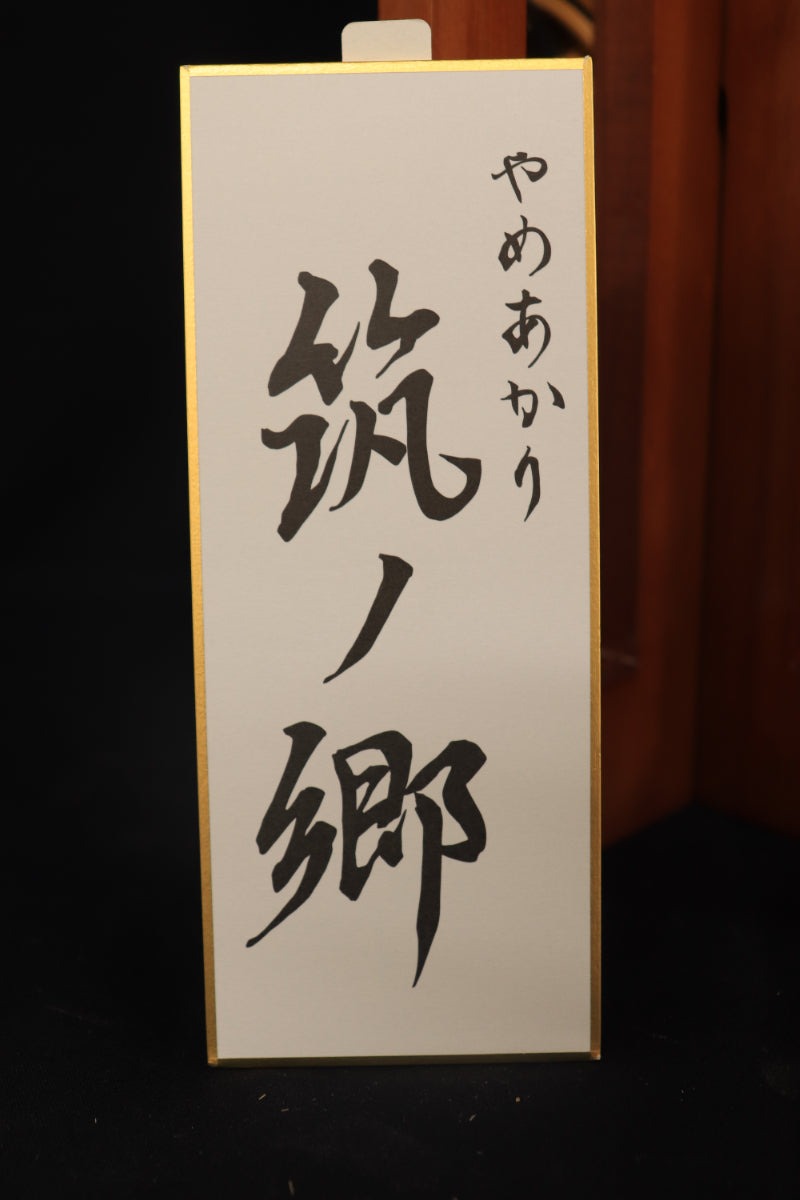 やめあかり
筑ノ郷